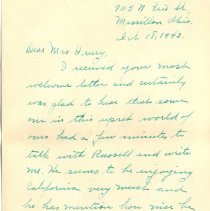 705 N. Erie St.
Massillon Ohio.
Feb 18, 1942.
Dear Mrs Drury,
I received your most
welcome letter and certainly
was glad to hear that some
one in this upset world of
ours had a few minutes to
talk with Russell and write
me. He seems to be enjoying
California very much and
he has mention how nice he